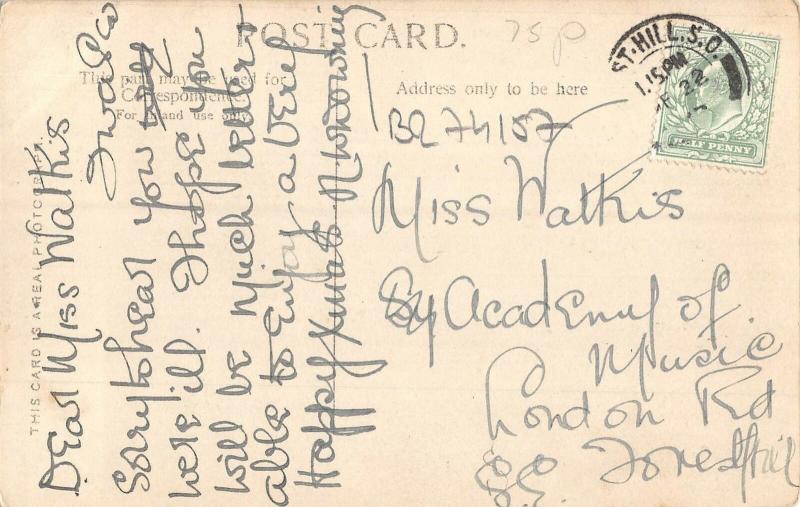 POST CARD.
75p
This part may be used for
Correspondence.
For Inland use only.
Address only to be here
THIS CARD IS A REAL PHOTOGRAPH.
ST-HILL.S.O.
1.15PM
22
HALF PENNY
B274157
Dear Miss Watkis
I was so
Sorry to hear you
were ill. I hope you
will be much better
able to Enjoy a very
Happy Xmas
Miss Watkis
Academy of
Music
London Rd
S.E. Foresthill